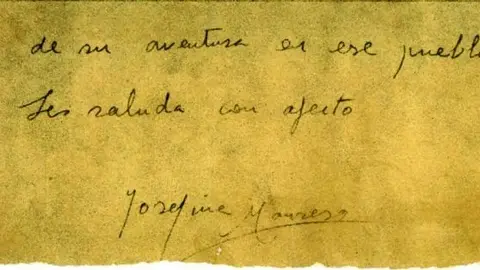 de su aventura en ese pueblo
Les saluda con afecto
Josefina Manresa